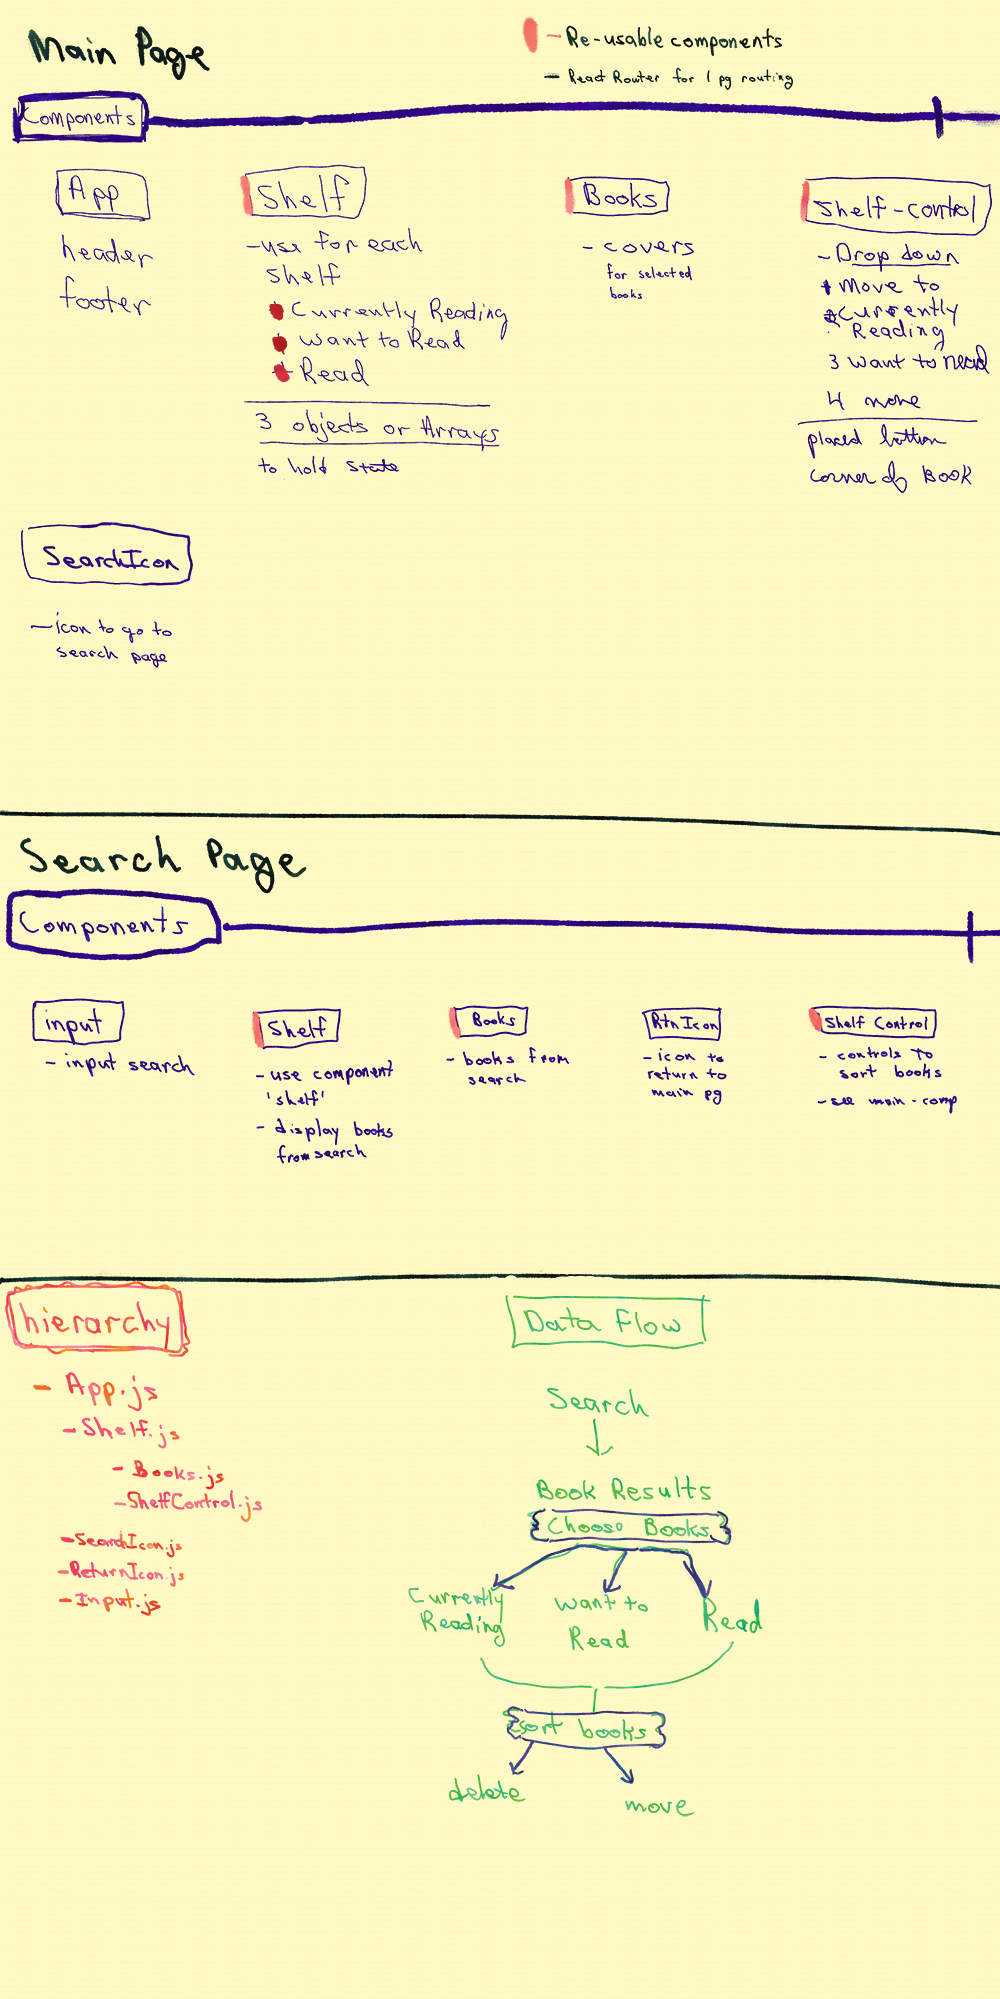 Main Page
- Re-usable components
- React Router for 1 pg routing
Components
App
header
footer
Shelf
- use for each
shelf
Currently Reading
Want to Read
Read
3 objects or Arrays
to hold state
Books
- covers
for selected
books
Shelf-control
- Drop down
Move to
Currently
Reading
3 want to read
4 none
placed bottom
corner of Book
SearchIcon
- icon to go to
search page
Search Page
Components
input
- input search
Shelf
- use component
'shelf'
- display books
from search
Books
- books from
search
RtnIcon
- icon to
return to
main pg
Shelf Control
- controls to
sort books
- see main-comp
hierarchy
- App.js
- Shelf.js
- Books.js
- ShelfControl.js
- SearchIcon.js
- ReturnIcon.js
- Input.js
Data Flow
Search
Book Results
{Choose Books}
Currently
Reading
Want to
Read
Read
{sort books}
delete
move